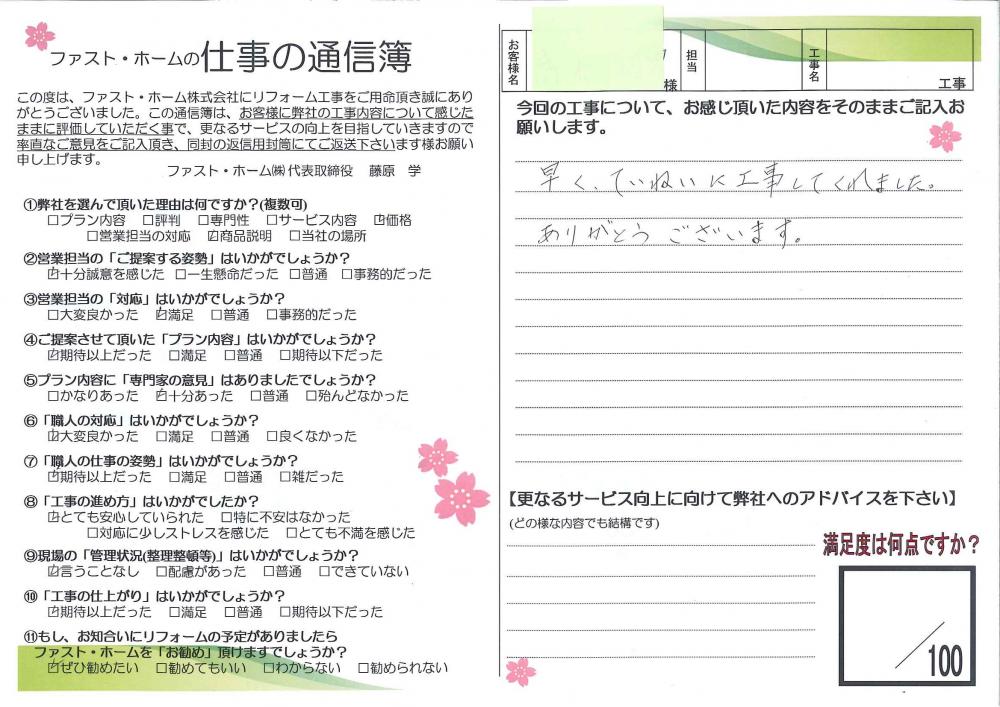 ファスト・ホームの仕事の通信簿
この度は、ファスト・ホーム株式会社にリフォーム工事をご用命頂き誠にあり
がとうございました。この通信簿は、お客様に弊社の工事内容について感じた
ままに評価していただく事で、更なるサービスの向上を目指していきますので
率直なご意見をご記入頂き、同封の返信用封筒にてご返送下さいます様お願い
申し上げます。
ファスト・ホーム㈱代表取締役 藤原 学
①弊社を選んで頂いた理由は何ですか?(複数可)
□プラン内容 □評判 □専門性 □サービス内容 ☑価格
□営業担当の対応 ☑商品説明 □当社の場所
②営業担当の「ご提案する姿勢」はいかがでしょうか?
☑十分誠意を感じた □一生懸命だった □普通 □事務的だった
③営業担当の「対応」はいかがでしょうか?
□大変良かった ☑満足 □普通 □事務的だった
④ご提案させて頂いた「プラン内容」はいかがでしょうか?
☑期待以上だった □満足 □普通 □期待以下だった
⑤プラン内容に「専門家の意見」はありましたでしょうか?
□かなりあった ☑十分あった □普通 □殆んどなかった
⑥「職人の対応」はいかがでしょうか?
☑大変良かった □満足 □普通 □良くなかった
⑦「職人の仕事の姿勢」はいかがでしょうか?
☑期待以上だった □満足 □普通 □雑だった
⑧「工事の進め方」はいかがでしたか?
☑とても安心していられた □特に不安はなかった
□対応に少しストレスを感じた □とても不満を感じた
⑨現場の「管理状況(整理整頓等)」はいかがでしょうか?
☑言うことなし □配慮があった □普通 □できていない
⑩「工事の仕上がり」はいかがでしょうか?
☑期待以上だった □満足 □普通 □期待以下だった
⑪もし、お知合いにリフォームの予定がありましたら
ファスト・ホームを「お勧め」頂けますでしょうか?
☑ぜひ勧めたい □勧めてもいい □わからない □勧められない
お客様名 様 担当 工事名 工事
今回の工事について、お感じ頂いた内容をそのままご記入お
願いします。
早く、ていねいに工事してくれました。
ありがとうございます。
【更なるサービス向上に向けて弊社へのアドバイスを下さい】
(どの様な内容でも結構です)
満足度は何点ですか?
/100